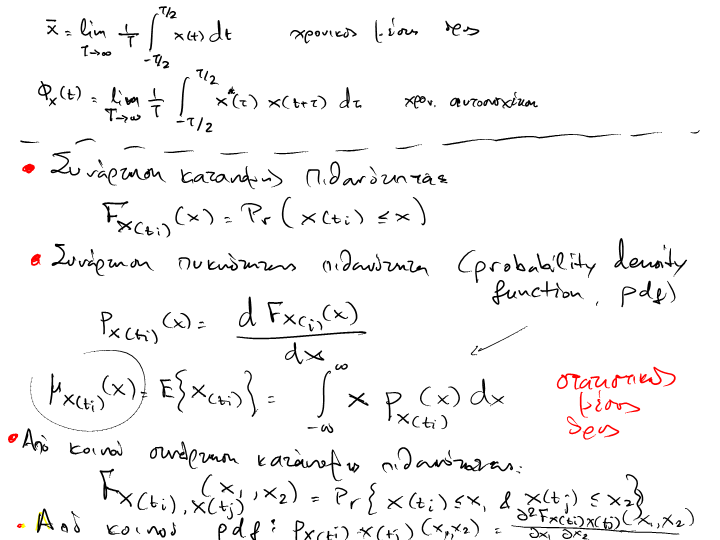 x̄ = lim_{T→∞} 1/T ∫_{-T/2}^{T/2} x(t) dt χρονικός μέσος όρος
Φ_x(t) = lim_{T→∞} 1/T ∫_{-T/2}^{T/2} x*(τ) x(t+τ) dτ χρον. αυτοσυσχέτιση
• Συνάρτηση κατανομής πιθανότητας
F_{x(t_i)}(x) = Pr(x(t_i) ≤ x)
• Συνάρτηση πυκνότητας πιθανότητα (probability density
function, pdf)
P_{x(t_i)}(x) = d F_{x(t_i)}(x) / dx
μ_{x(t_i)}(x) = E{x(t_i)} = ∫_{-∞}^{∞} x p_{x(t_i)}(x) dx στατιστικός
μέσος
όρος
• Από κοινού συνάρτηση κατανομής πιθανότητας:
F_{x(t_i), x(t_j)}(x_1, x_2) = Pr{x(t_i) ≤ x_1 & x(t_j) ≤ x_2}
• Από κοινού pdf: P_{x(t_i) x(t_j)}(x_1, x_2) = ∂²F_{x(t_i) x(t_j)}(x_1, x_2) / ∂x_1 ∂x_2